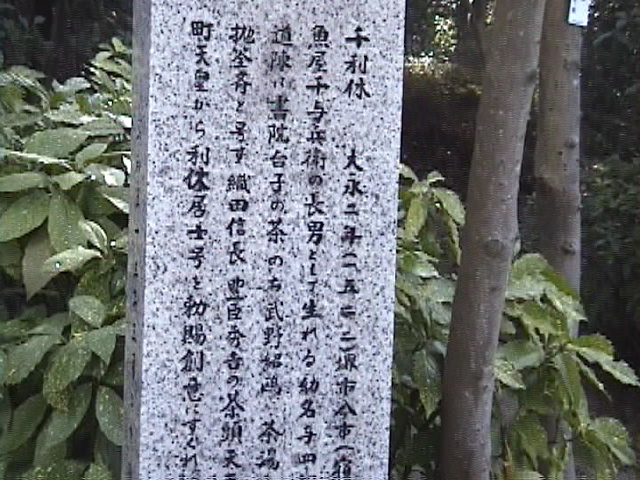 千利休 大永二年(一五二二)堺市今市(
魚屋千与兵衛の長男として生れる幼名与四
道陳に書院台子の茶の 武野紹鴎 茶湯
抛筌斎と号す織田信長 豊臣秀吉の茶頭天正
町天皇から利休居士号を勅賜創意にすぐれ